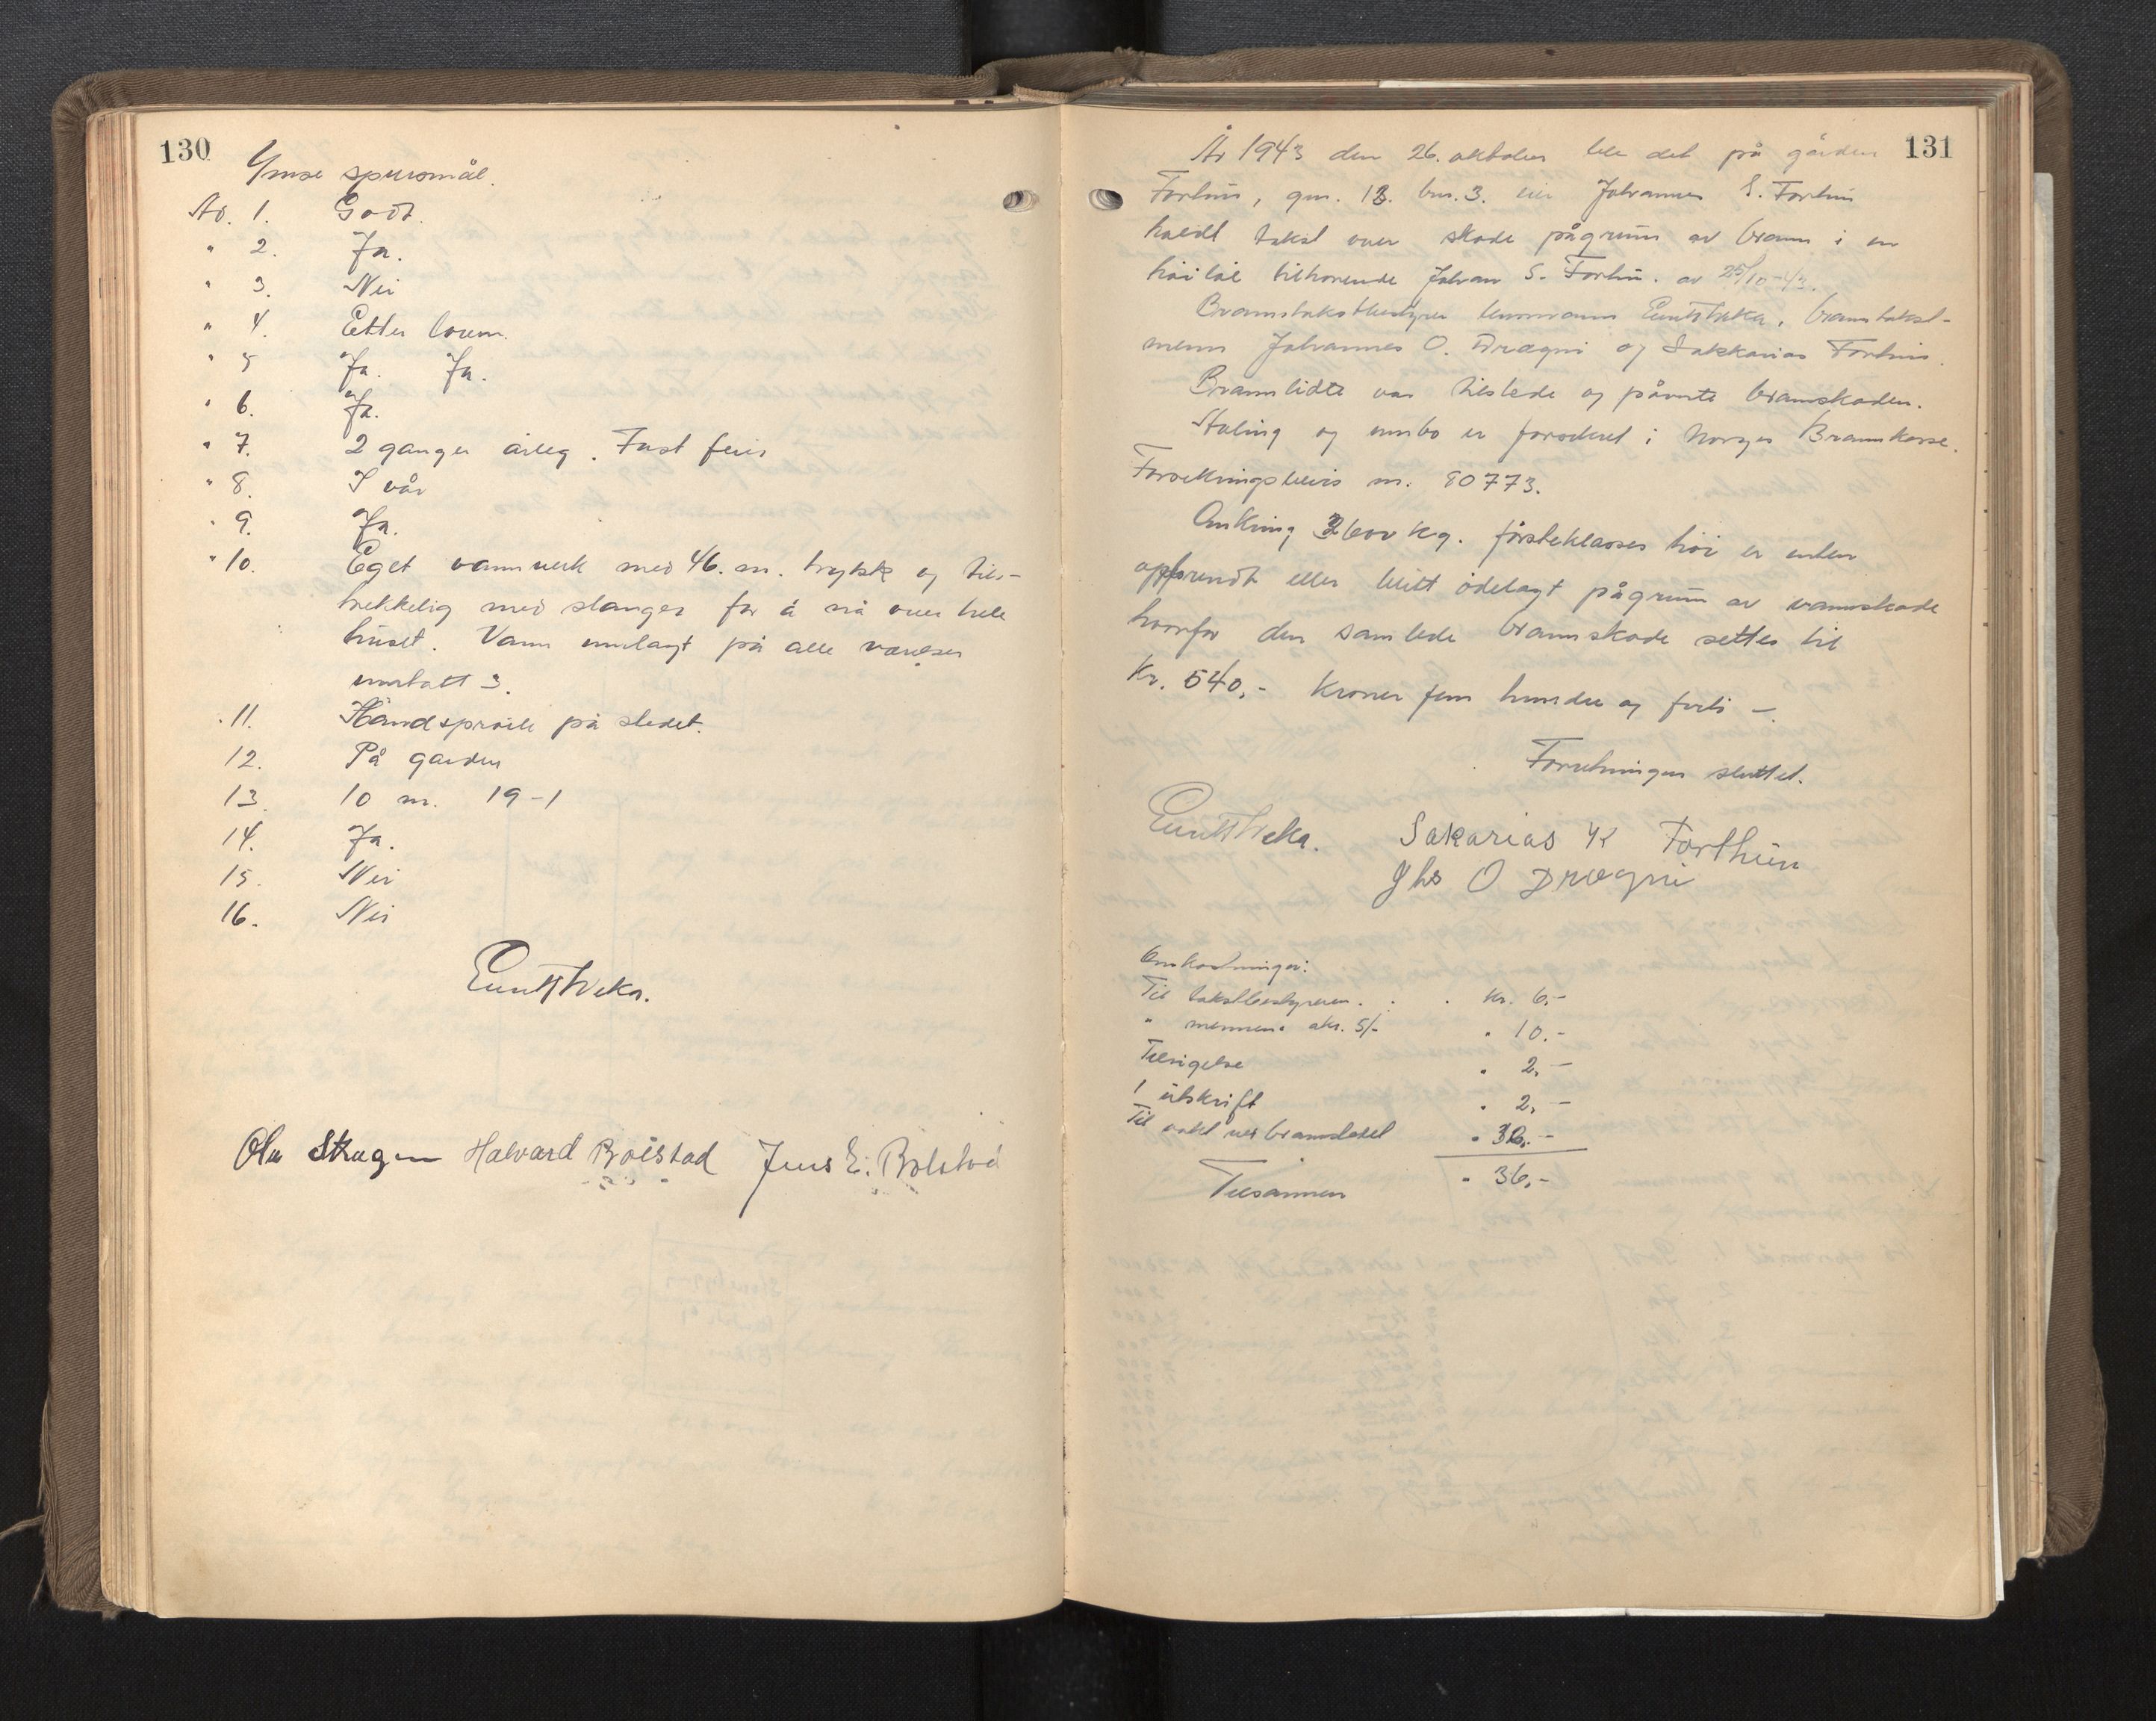 130
Ymse spursmål.
Ad. 1. Godt.
" 2. Ja.
" 3. Nei
" 4. Etter loven.
" 5 Ja. Ja.
" 6. Ja.
" 7. 2 ganger årleg. Fast feier
" 8. I vår
" 9. Ja.
" 10. Eget vannverk med 46. m. trykk og til-
trekkelig med slanger for å nå over hele
huset. Vann innlagt på alle værelser
unntatt 3.
" 11. Håndsprøite på stedet.
12. På garden
13. 10 m. 19-1
14. Ja.
15. Nei
16. Nei
Ola Skagen Halvard Bolstad Jens E. Bolstad
131
År 1943 den 26. oktober ble det på gården
Forthun, gnr. 13. bnr. 3. Johannes S. Forthun
holdt takst over skade pågrunn av brann i en
høiløe tilhørende Johan S. Forthun. av 25/10-43.
Branntakstbestyrer lensmann branntakst-
menn Johannes O. Drægni og Sakkarias Forthun.
Brannlidte var tilstede og påviste brannskaden.
Staling og innbo er forsikret i Norges Brannkasse.
Forsikringsbevis nr. 80773.
Omkring 3600 kg. førsteklasses høi er enten
oppbrendt eller blitt ødelagt pågrunn av vannskade
hvorfor den samlede brannskade settes til
Kr. 540,- Kroner fem hundre og forti -.
Forretningen sluttet.
Sakarias K Forthun
Jhs O Drægni
Omkostninger:
Til takstbestyreren . . . Kr. 6,-
" mennene akr. 5/- " 10.-
Tilsigelse " 2,-
1 utskrift " 2,-
Til vakt ved brannstedet "
Tilsammen " 36,-